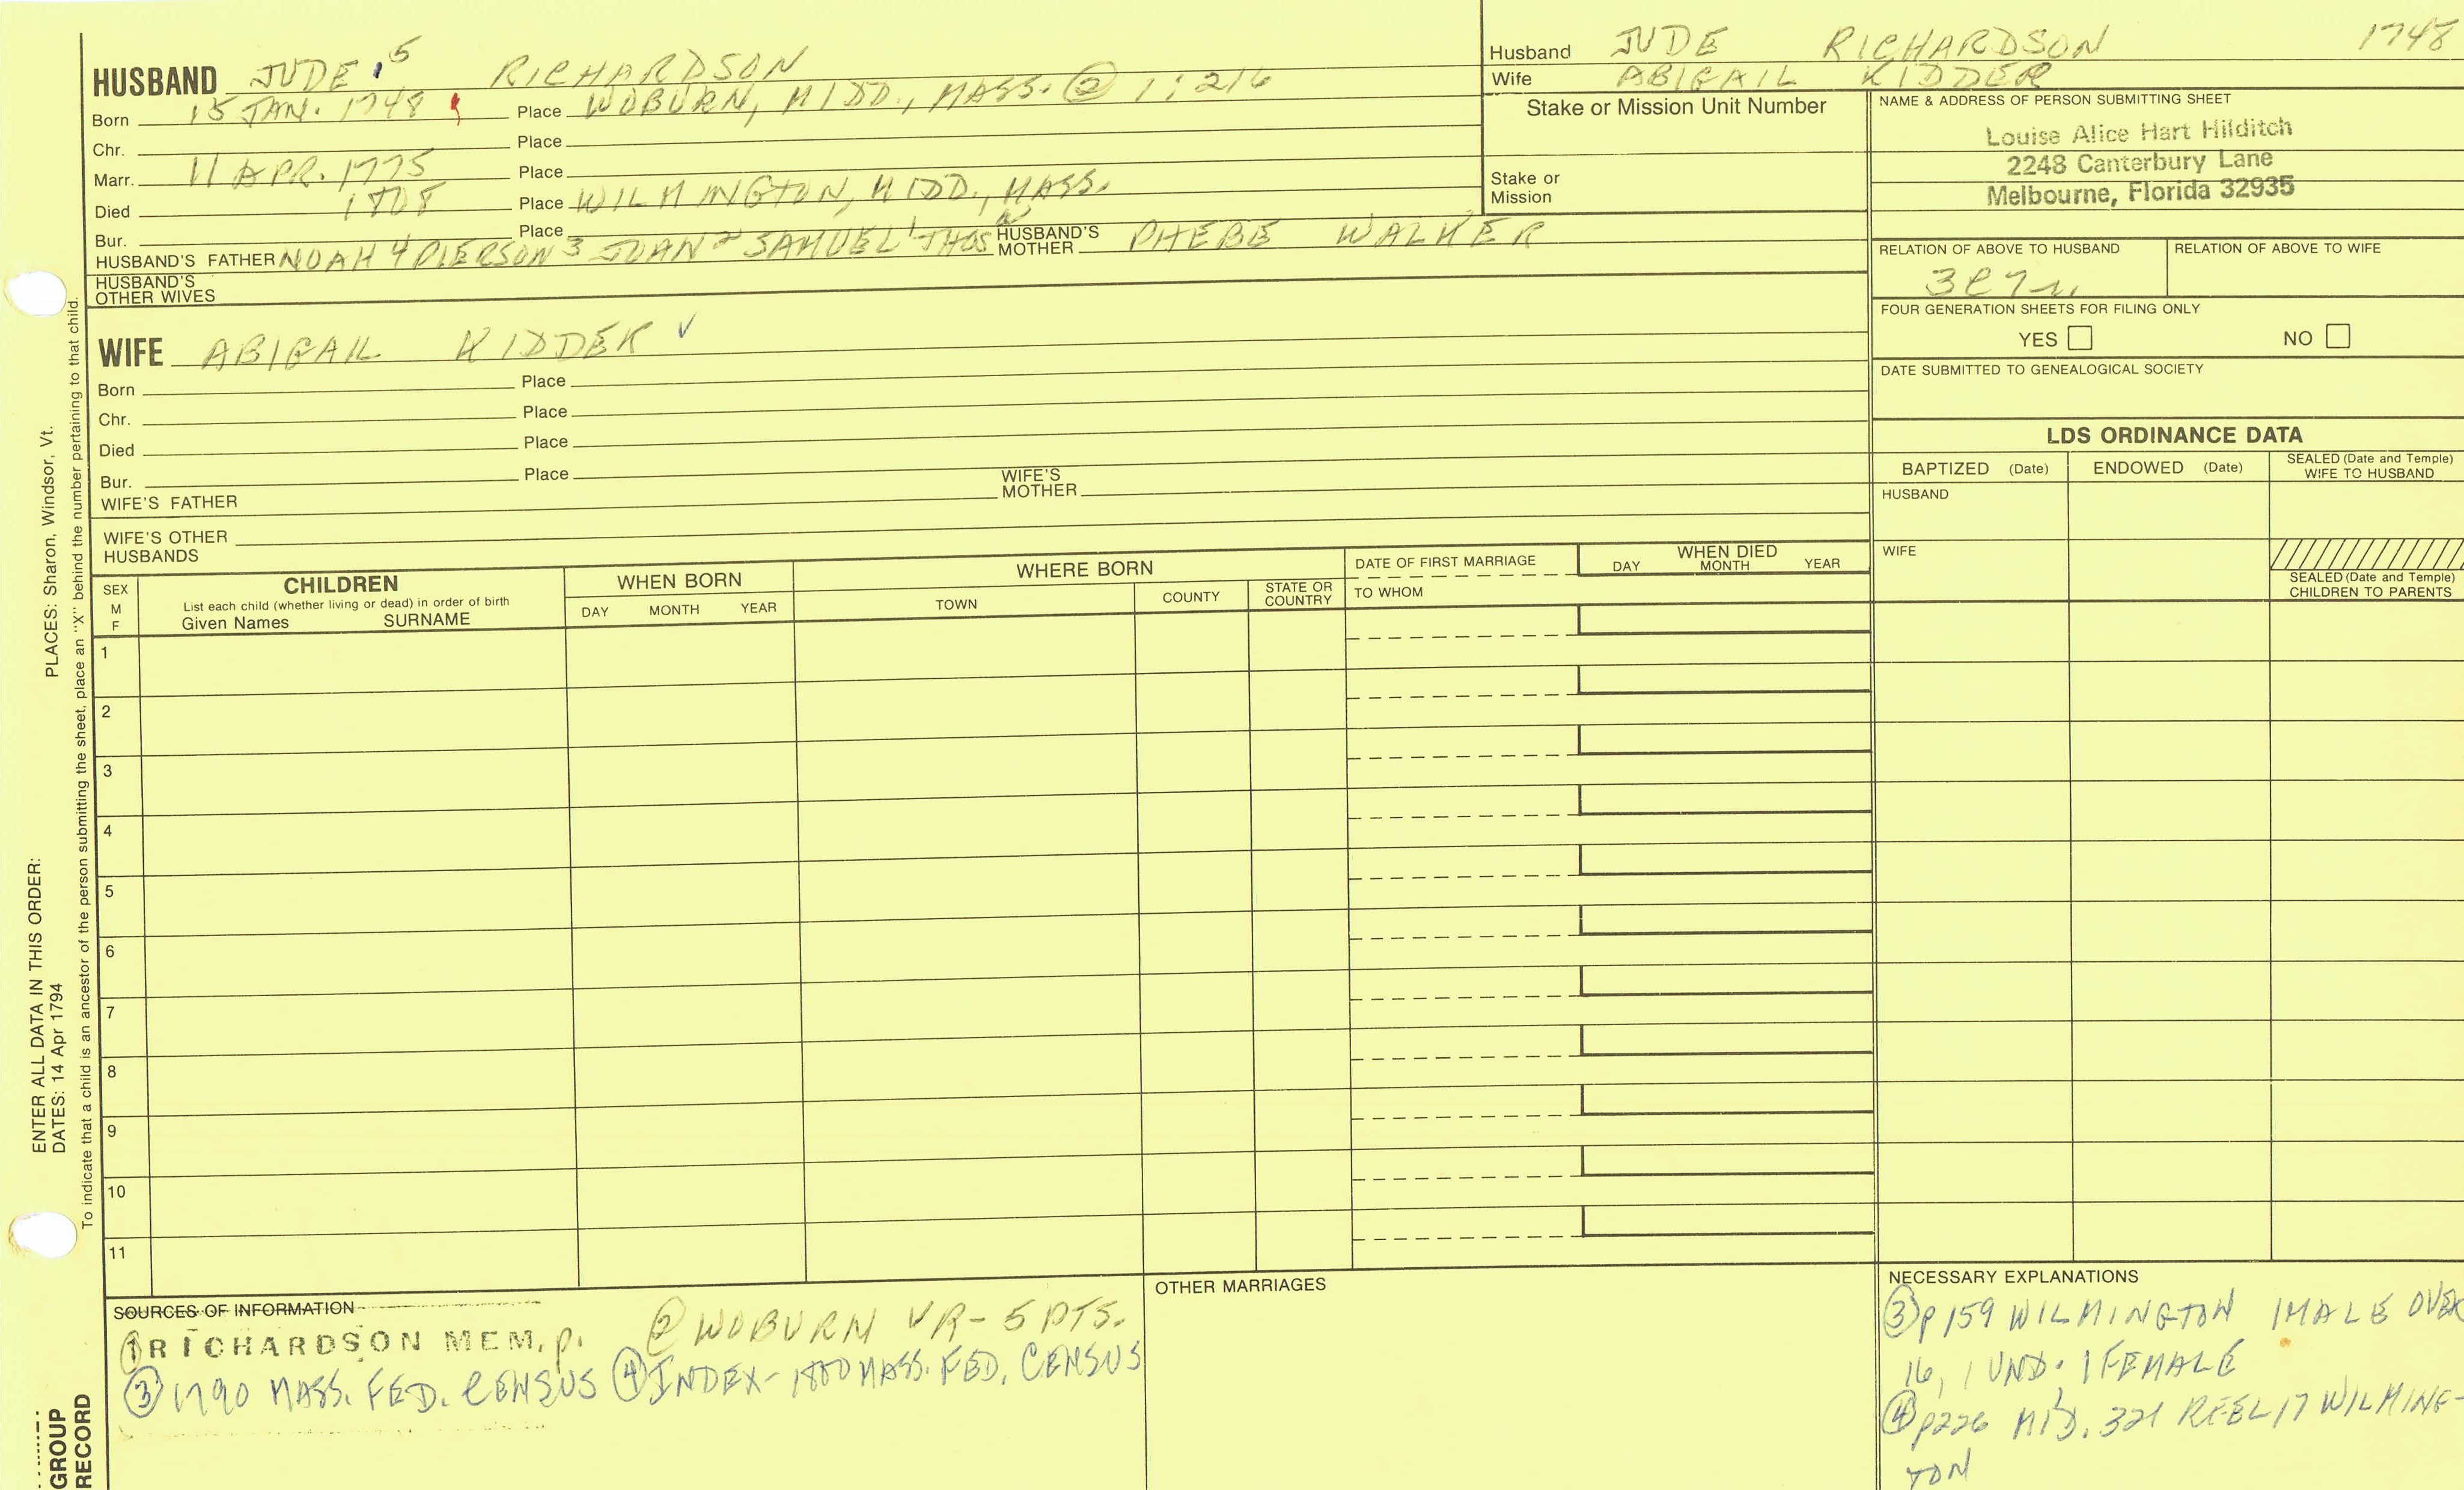 HUSBAND JUDE 5 RICHARDSON
Born 15 JAN. 1748 Place WOBURN, MIDD., MASS. ② 1:216
Chr. Place
Marr. 11 APR. 1775 Place
Died 1808 Place WILMINGTON, MIDD., MASS.
Bur. Place
HUSBAND'S FATHER NOAH 4 PIERSON 3 JUAN 2 SAMUEL 1 THOS HUSBAND'S MOTHER PHEBE WALKER
HUSBAND'S OTHER WIVES
WIFE ABIGAIL KIDDER ✓
Born Place
Chr. Place
Died Place
Bur. Place
WIFE'S FATHER WIFE'S MOTHER
WIFE'S OTHER HUSBANDS
Husband JUDE RICHARDSON 1748
Wife ABIGAIL KIDDER
Stake or Mission Unit Number
Stake or Mission
NAME & ADDRESS OF PERSON SUBMITTING SHEET
Louise Alice Hart Hilditch
2248 Canterbury Lane
Melbourne, Florida 32935
RELATION OF ABOVE TO HUSBAND RELATION OF ABOVE TO WIFE
FOUR GENERATION SHEETS FOR FILING ONLY
YES NO
DATE SUBMITTED TO GENEALOGICAL SOCIETY
LDS ORDINANCE DATA
BAPTIZED (Date) ENDOWED (Date) SEALED (Date and Temple) WIFE TO HUSBAND
HUSBAND
WIFE
SEALED (Date and Temple) CHILDREN TO PARENTS
SEX M F
CHILDREN
List each child (whether living or dead) in order of birth
Given Names SURNAME
WHEN BORN
DAY MONTH YEAR
WHERE BORN
TOWN COUNTY STATE OR COUNTRY
DATE OF FIRST MARRIAGE
TO WHOM
WHEN DIED
DAY MONTH YEAR
1
2
3
4
5
6
7
8
9
10
11
SOURCES OF INFORMATION
① RICHARDSON MEM, p. ② WOBURN VR - 5 PTS.
③ 1790 MASS. FED. CENSUS ④ INDEX - 1800 MASS. FED. CENSUS
OTHER MARRIAGES
NECESSARY EXPLANATIONS
③ p 159 WILMINGTON 1 MALE OVER
16, 1 UND. 1 FEMALE
④ p226 MID. 321 REEL 17 WILMING-
TON
PLACES: Sharon, Windsor, Vt.
ENTER ALL DATA IN THIS ORDER:
DATES: 14 Apr 1794
To indicate that a child is an ancestor of the person submitting the sheet, place an "X" behind the number pertaining to that child.
GROUP
RECORD